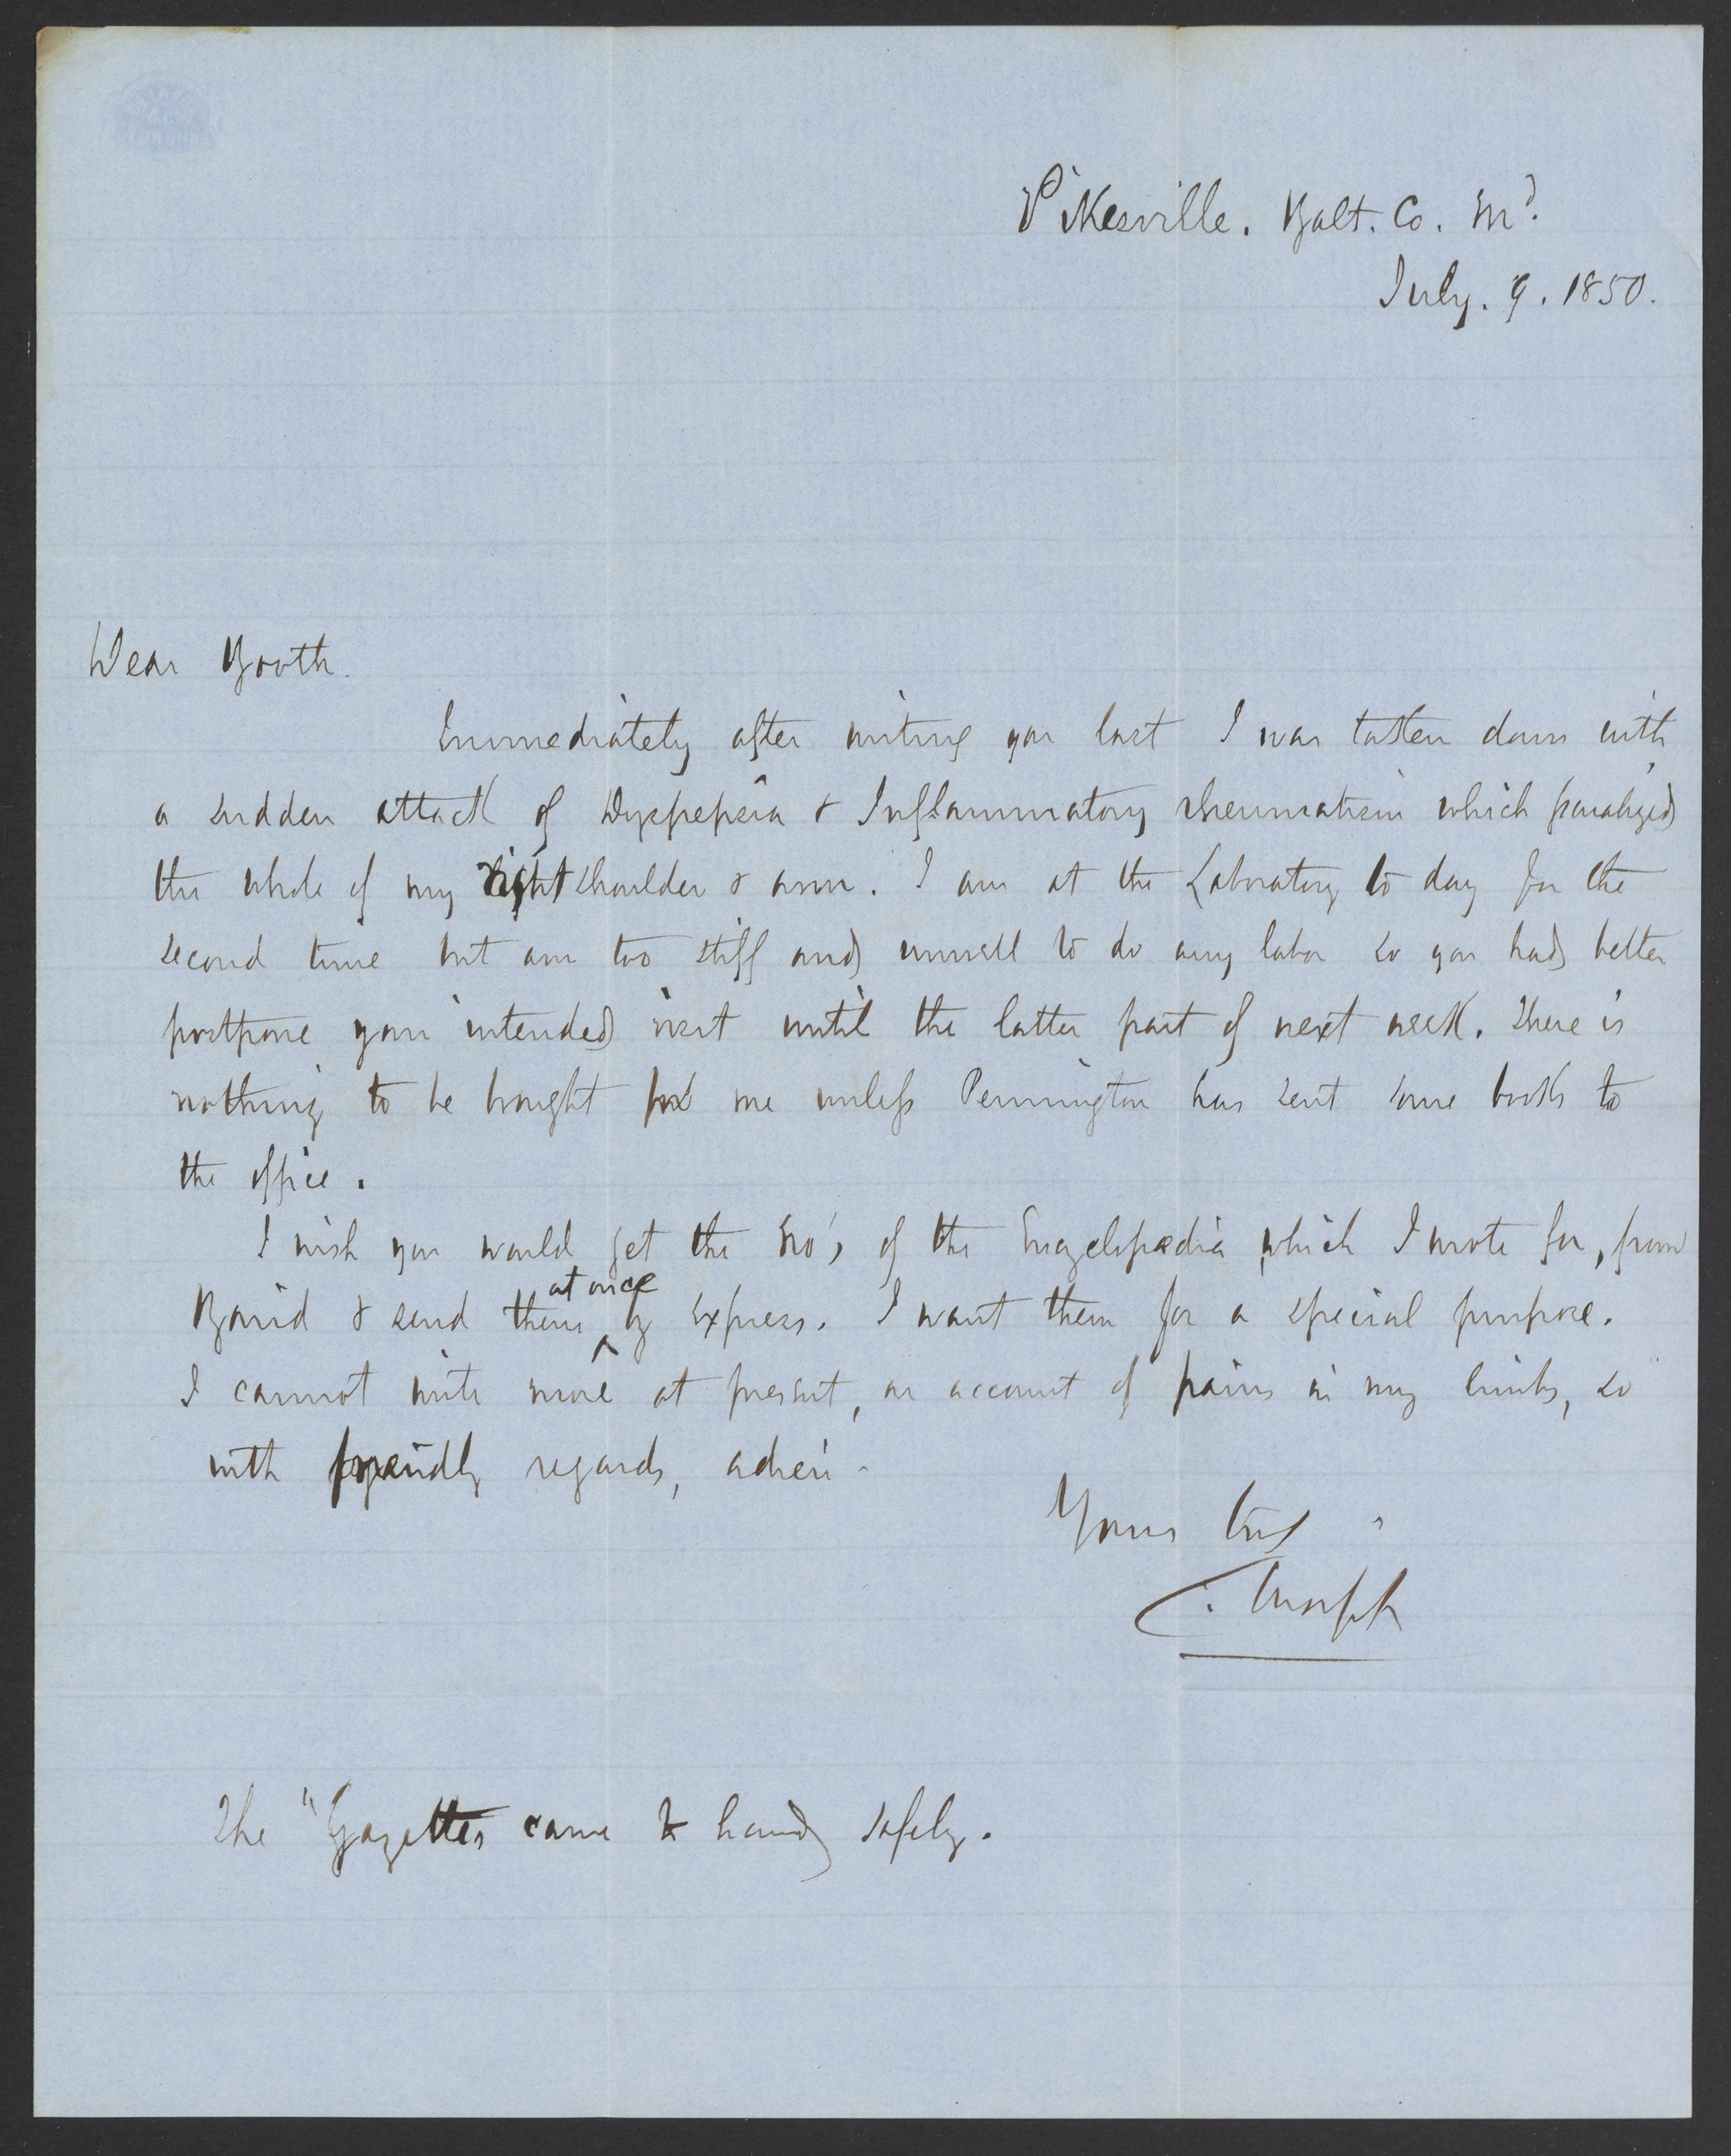 Pikesville. Balt. Co. Md.
July. 9. 1850.
Dear Booth.
Immediately after writing you last I was taken down with
a sudden attack of Dyspepsia & Inflammatory rheumatism which paralyzed
the whole of my right shoulder & arm. I am at the Laboratory to day for the
second time but am too stiff and unwell to do any labor so you had better
postpone your intended visit until the latter part of next week. There is
nothing to be brought for me unless Pennington has sent some books to
the office.
I wish you would get the No's of the Encyclopædia which I wrote for, from
Baird & send them at once by Express. I want them for a special purpose.
I cannot write more at present, on account of pains in my limbs, so
with friendly regards, adieu.
Yours truly
C. Morfit
The "Gazettes came to hand safely.